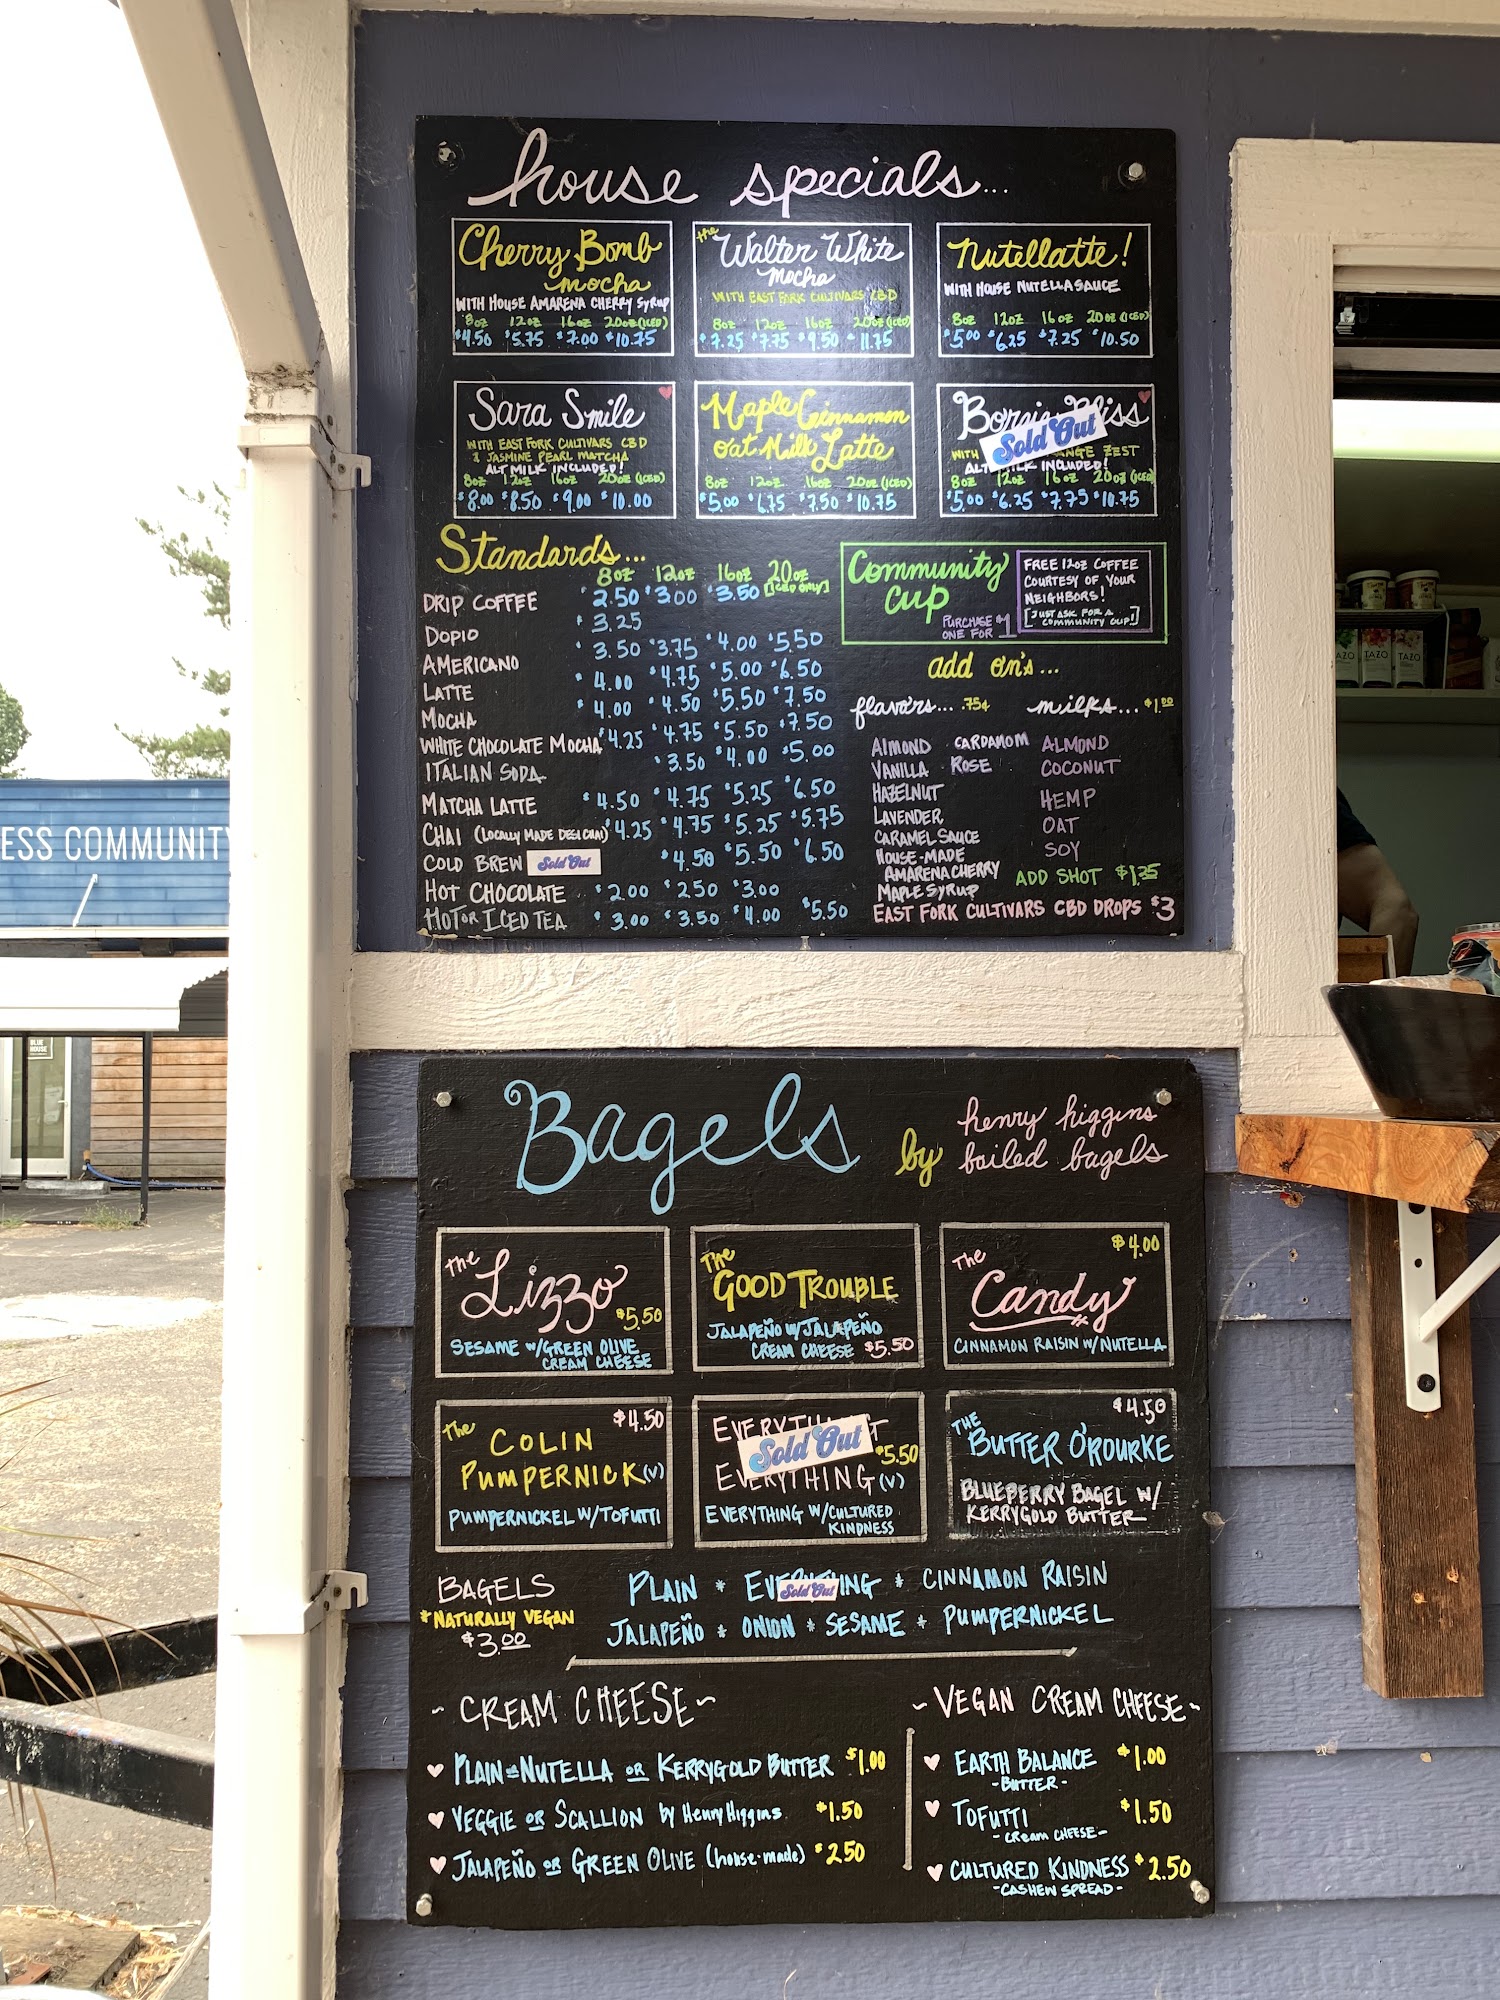 house specials...
Cherry Bomb
mocha
WITH HOUSE AMARENA CHERRY SYRUP
8oz 12oz 16oz 20oz (ICED)
$4.50 $5.75 $7.00 $10.75
the Walter White
Mocha
WITH EAST FORK CULTIVARS CBD
8oz 12oz 16oz 20oz (ICED)
$7.25 $7.75 $9.50 $11.75
Nutellatte!
WITH HOUSE NUTELLA SAUCE
8oz 12oz 16oz 20oz (ICED)
$5.00 $6.25 $7.25 $10.50
Sara Smile
WITH EAST FORK CULTIVARS CBD
& JASMINE PEARL MATCHA
ALT MILK INCLUDED!
8oz 12oz 16oz 20oz (ICED)
$8.00 $8.50 $9.00 $10.00
Maple Cinnamon
Oat Milk Latte
8oz 12oz 16oz 20oz (ICED)
$5.00 $6.75 $7.50 $10.75
Bliss
Sold Out
WITH ZEST
MILK INCLUDED!
8oz 12oz 16oz 20oz (ICED)
$5.00 $6.25 $7.75 $10.75
Standards...
8oz 12oz 16oz 20oz
[ICED ONLY]
DRIP COFFEE $2.50 $3.00 $3.50
DOPIO $3.25
AMERICANO $3.50 $3.75 $4.00 $5.50
LATTE $4.00 $4.75 $5.00 $6.50
MOCHA $4.00 $4.50 $5.50 $7.50
WHITE CHOCOLATE MOCHA $4.25 $4.75 $5.50 $7.50
ITALIAN SODA $3.50 $4.00 $5.00
MATCHA LATTE $4.50 $4.75 $5.25 $6.50
CHAI (LOCALLY MADE DESI CHAI) $4.25 $4.75 $5.25 $5.75
COLD BREW Sold Out $4.50 $5.50 $6.50
HOT CHOCOLATE $2.00 $2.50 $3.00
HOT OR ICED TEA $3.00 $3.50 $4.00 $5.50
Community
Cup
PURCHASE
ONE FOR $1
FREE 12oz COFFEE
COURTESY OF YOUR
NEIGHBORS!
[JUST ASK FOR A
COMMUNITY CUP!]
add on's...
flavors... .75¢
ALMOND CARDAMOM
VANILLA ROSE
HAZELNUT
LAVENDER
CARAMEL SAUCE
HOUSE-MADE
AMARENA CHERRY
MAPLE SYRUP
milks... $1.00
ALMOND
COCONUT
HEMP
OAT
SOY
ADD SHOT $1.25
EAST FORK CULTIVARS CBD DROPS $3
ESS COMMUNITY
BLUE
HOUSE
TAZO TAZO
Bagels by henry higgins
boiled bagels
the Lizzo
$5.50
SESAME W/GREEN OLIVE
CREAM CHEESE
The
GOOD TROUBLE
JALAPEÑO W/JALAPEÑO
CREAM CHEESE $5.50
$4.00
The
Candy
CINNAMON RAISIN W/NUTELLA
$4.50
the COLIN
PUMPERNICK (V)
PUMPERNICKEL W/TOFUTTI
Sold Out
$5.50
EVERYTHING (V)
EVERYTHING W/CULTURED
KINDNESS
$4.50
THE
BUTTER O'ROURKE
BLUEBERRY BAGEL W/
KERRYGOLD BUTTER
BAGELS
*NATURALLY VEGAN
$3.00
PLAIN * EVERYTHING * CINNAMON RAISIN
Sold Out
JALAPEÑO * ONION * SESAME * PUMPERNICKEL
~CREAM CHEESE~
PLAIN or NUTELLA OR KERRYGOLD BUTTER $1.00
VEGGIE OR SCALLION by Henry Higgins $1.50
JALAPEÑO OR GREEN OLIVE (house-made) $2.50
~VEGAN CREAM CHEESE~
EARTH BALANCE $1.00
-BUTTER-
TOFUTTI $1.50
-CREAM CHEESE-
CULTURED KINDNESS $2.50
-CASHEW SPREAD-